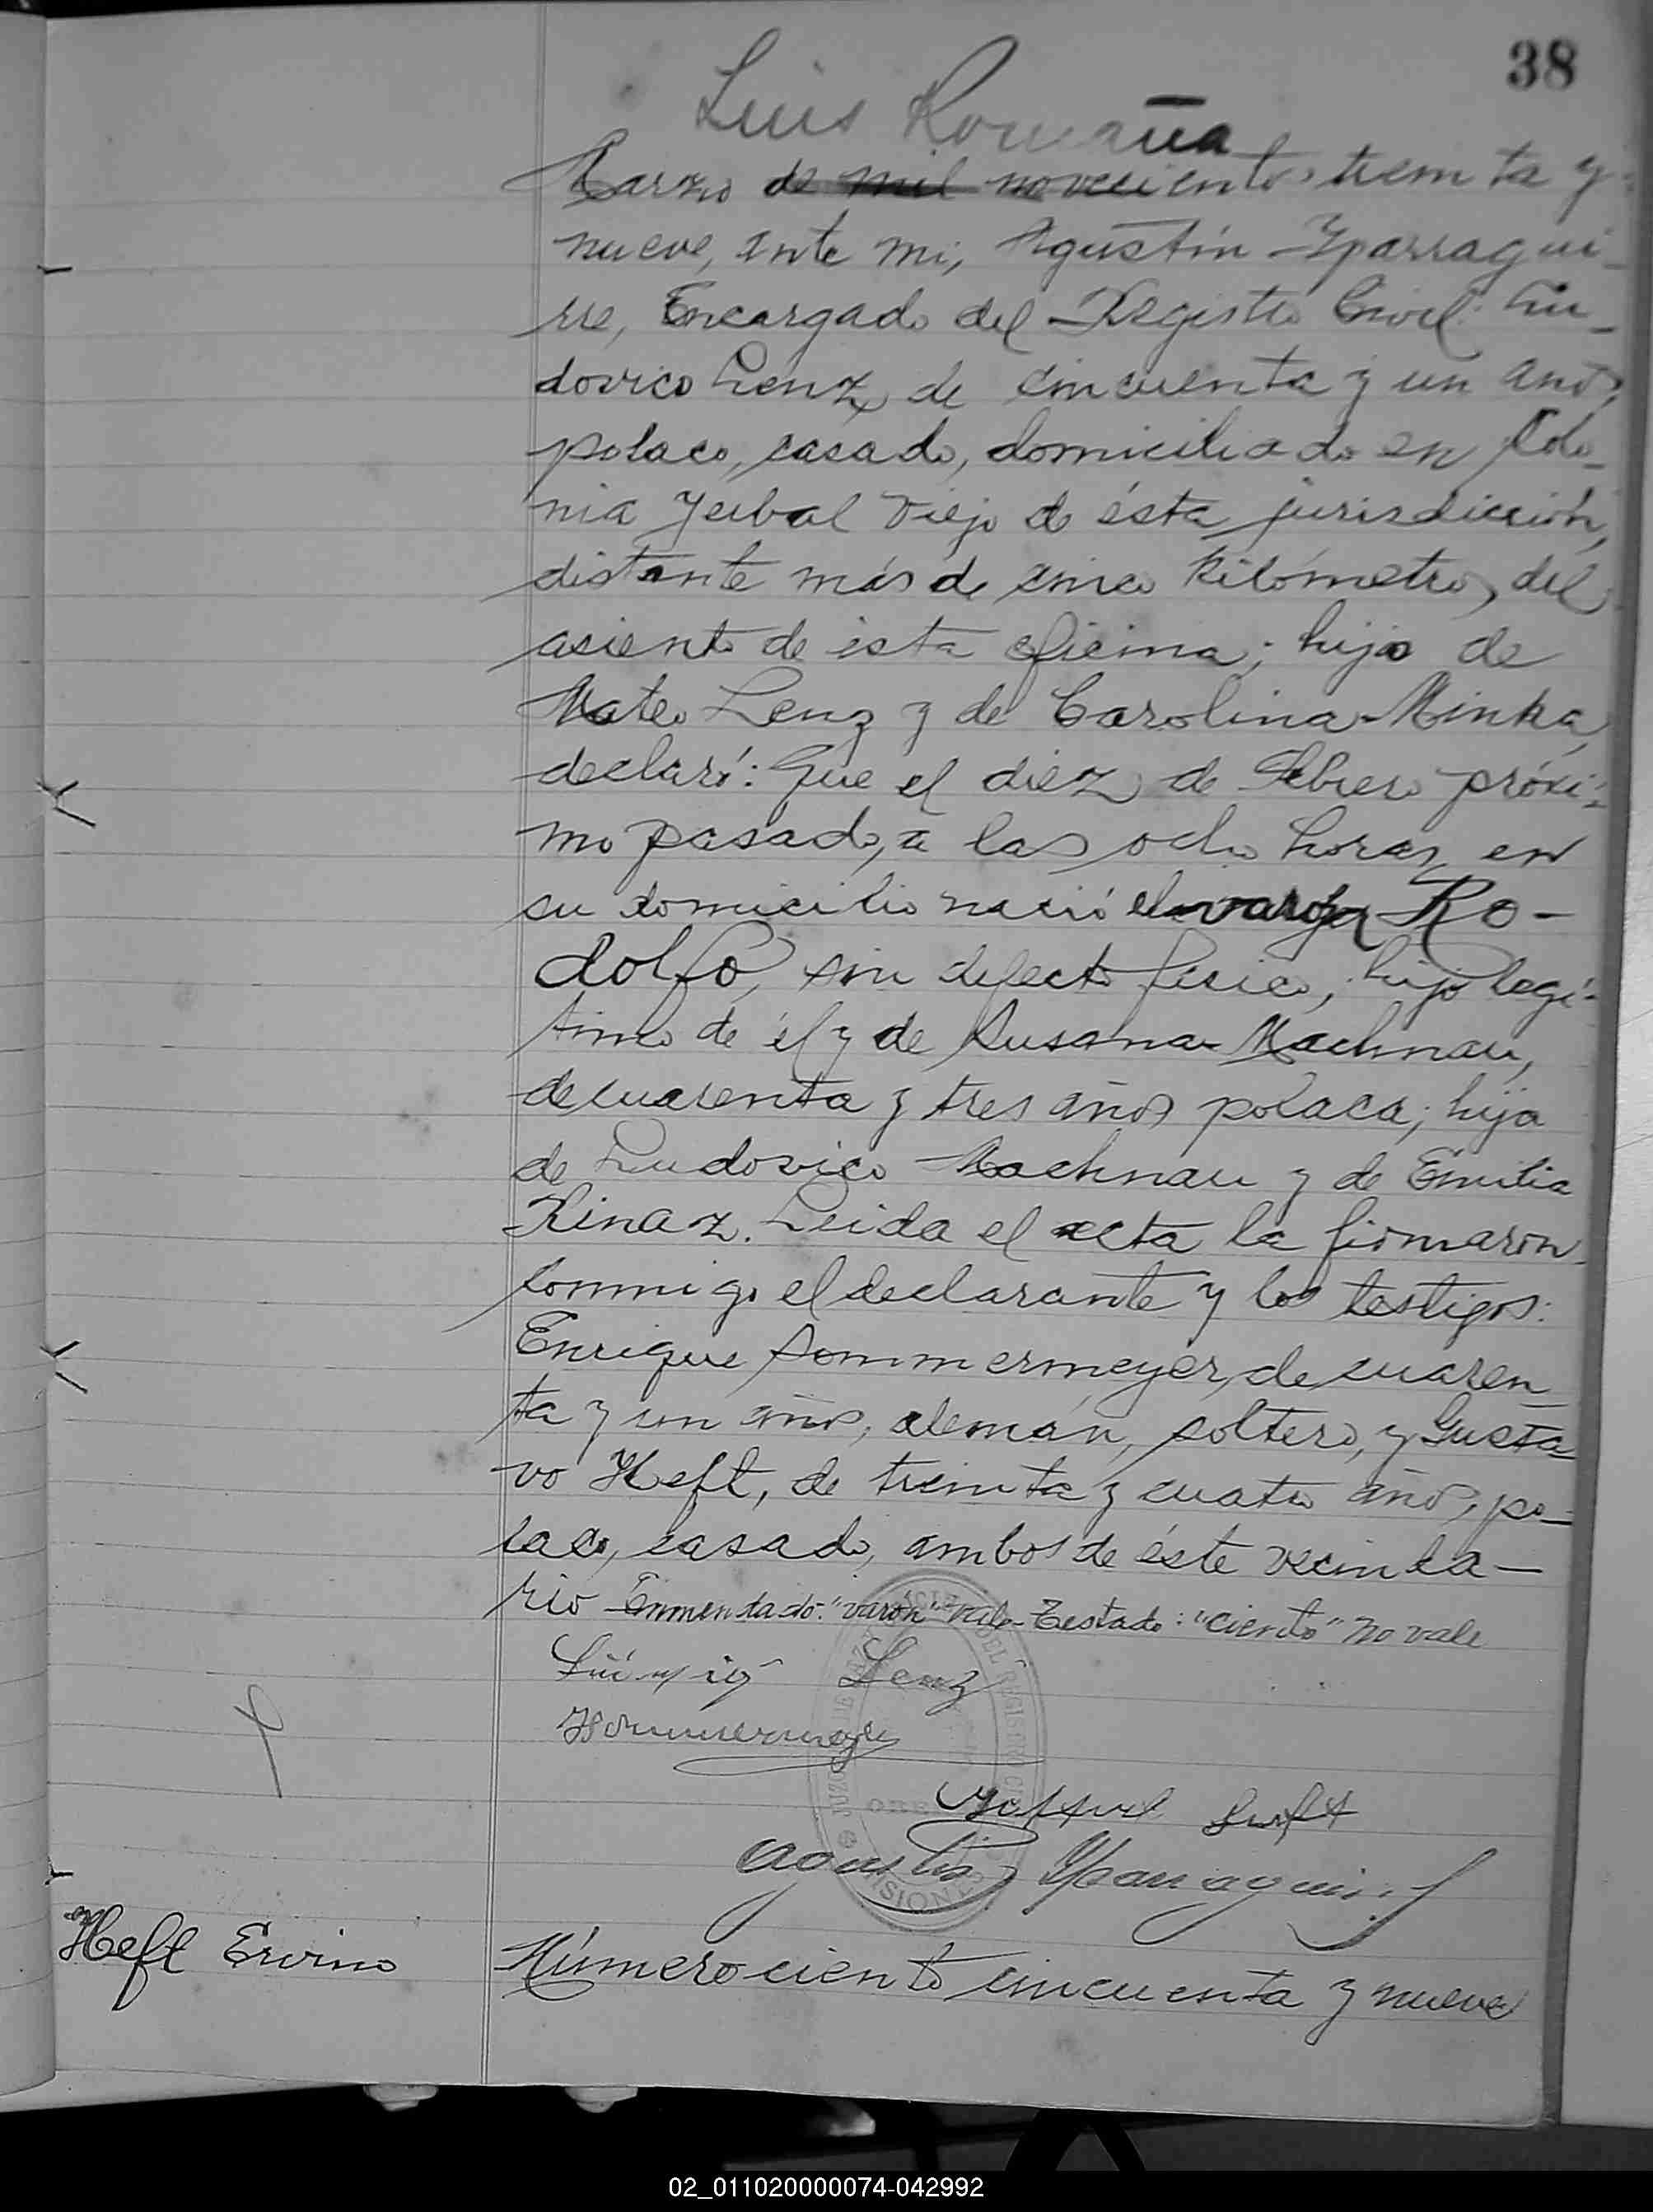 38
Luis Romaña
Marzo de mil novecientos treinta y
nueve, ante mi, Agustín Yparragui-
rre, Encargado del Registro Civil: Lu-
dovico Lenz, de cincuenta y un años,
polaco, casado, domiciliado en Colo-
nia Yerbal Viejo de ésta jurisdicción,
distante más de cinco kilómetros del
asiento de ésta oficina; hijo de
Mateo Lenz y de Carolina Minka,
declaró: Que el diez de Febrero próxi-
mo pasado, a las ocho horas, en
su domicilio nació el varón Ro-
dolfo, sin defecto fisico, hijo legí-
timo de él y de Susana Machnau,
de cuarenta y tres años polaca; hija
de Ludovico Machnau y de Emilia
Kinaz. Leida el acta la firmaron
conmigo el declarante y los testigos:
Enrique Sommermeyer, de cuaren-
ta y un años, alemán, soltero, y Gusta-
vo Heft, de treinta y cuatro años, po-
laco, casado, ambos de éste vecinda-
rio Enmendado: "varon" vale - Testado: "ciento" no vale
Lenz
HSommermeyer
Agustín Yparraguirre
REGISTRO CI
MISIONES
Heft Ervino
Número ciento cincuenta y nueve
02_011020000074-042992